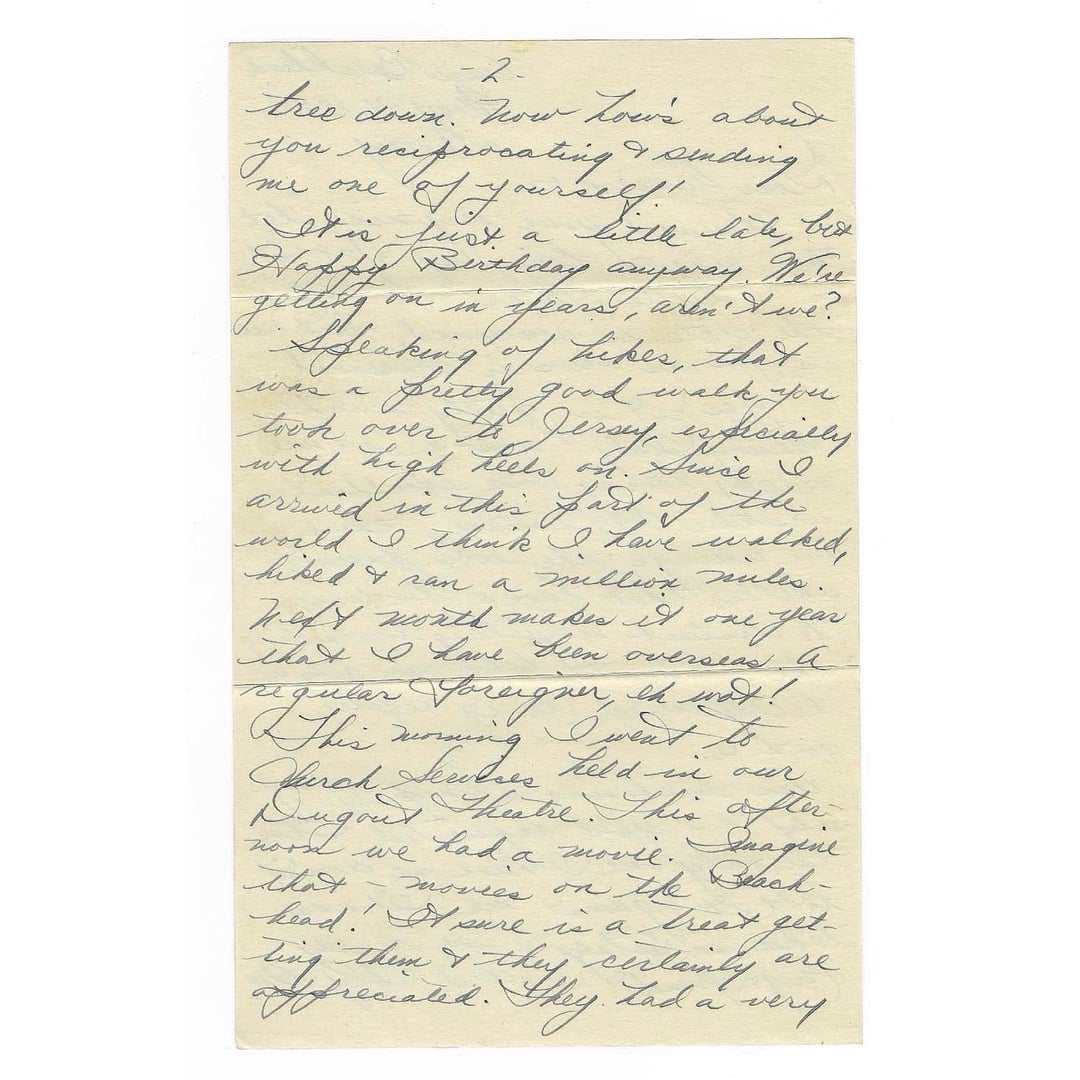 -2-
tree down. Now how's about
you reciprocating & sending
me one of yourself!
It is just a little late, but
Happy Birthday anyway. We're
getting on in years, aren't we?
Speaking of hikes, that
was a pretty good walk you
took over to Jersey, especially
with high heels on. Since I
arrived in this part of the
world I think I have walked,
hiked & ran a million miles.
Next month makes it one year
that I have been overseas. A
regular foreigner, eh wot!
This morning I went to
Church Services held in our
Dugout Theatre. This after-
noon we had a movie. Imagine
that - movies on the Beach-
head! It sure is a treat get-
ting them & they certainly are
appreciated. They had a very